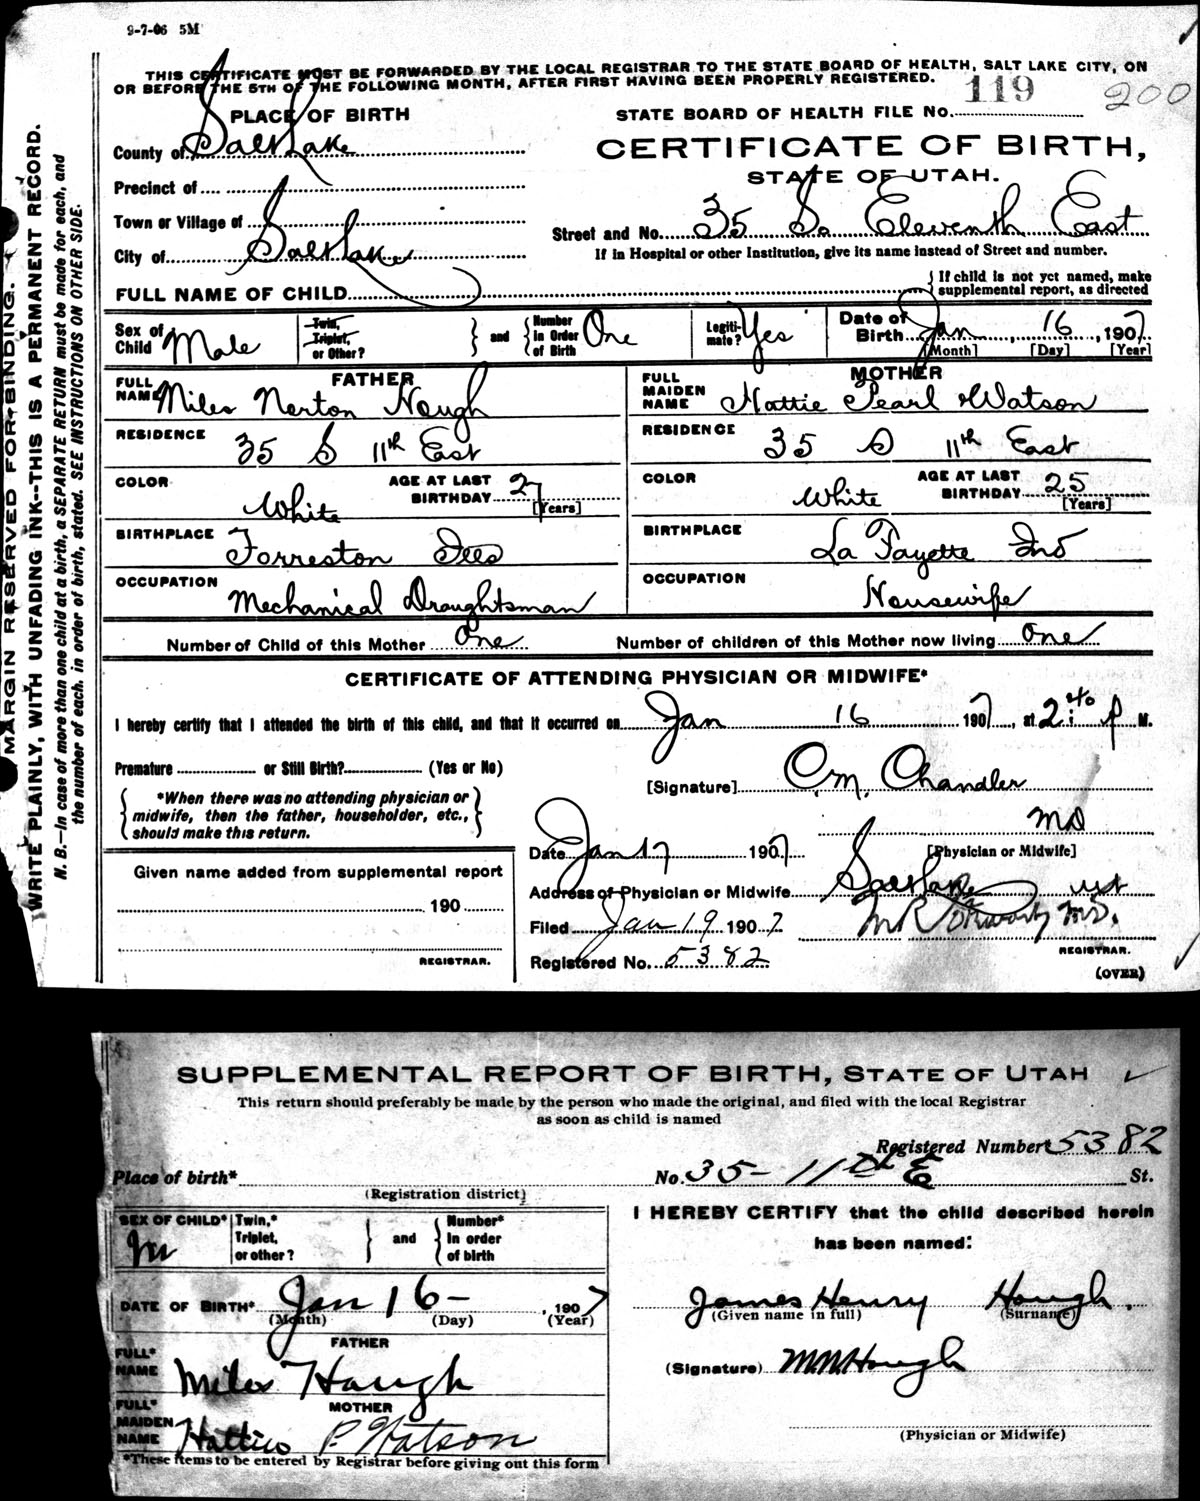 9-7-06 5M
THIS CERTIFICATE MUST BE FORWARDED BY THE LOCAL REGISTRAR TO THE STATE BOARD OF HEALTH, SALT LAKE CITY, ON
OR BEFORE THE 5TH OF THE FOLLOWING MONTH, AFTER FIRST HAVING BEEN PROPERLY REGISTERED.
119
200
PLACE OF BIRTH
STATE BOARD OF HEALTH FILE NO.
County of Salt Lake
CERTIFICATE OF BIRTH,
STATE OF UTAH.
Precinct of
Town or Village of
Street and No. 35 So Eleventh East
City of Salt Lake
If in Hospital or other Institution, give its name instead of Street and number.
FULL NAME OF CHILD
If child is not yet named, make
supplemental report, as directed
Sex of Child Male
Twin, Triplet, or Other?
and
Number in Order of Birth One
Legiti-mate? Yes
Date of Birth Jan 16, 1907
[Month] [Day] [Year]
FATHER
FULL NAME Miles Norton Hough
MOTHER
FULL MAIDEN NAME Hattie Pearl Watson
RESIDENCE 35 S 11th East
RESIDENCE 35 S 11th East
COLOR White
AGE AT LAST BIRTHDAY 27 [Years]
COLOR White
AGE AT LAST BIRTHDAY 25 [Years]
BIRTHPLACE Forreston Ills
BIRTHPLACE La Fayette Ind
OCCUPATION Mechanical Draughtsman
OCCUPATION Housewife
Number of Child of this Mother One
Number of children of this Mother now living One
CERTIFICATE OF ATTENDING PHYSICIAN OR MIDWIFE*
I hereby certify that I attended the birth of this child, and that it occurred on Jan 16 1907, at 2:40 P M.
Premature or Still Birth? (Yes or No)
[Signature] C.M. Chandler
*When there was no attending physician or
midwife, then the father, householder, etc.,
should make this return.
MD
Date Jan 17 1907
[Physician or Midwife]
Given name added from supplemental report
190
REGISTRAR.
Address of Physician or Midwife Salt Lake
Filed Jan 19 1907
MD.
REGISTRAR.
Registered No. 5382
(OVER)
MARGIN RESERVED FOR BINDING.
WRITE PLAINLY, WITH UNFADING INK--THIS IS A PERMANENT RECORD.
N. B.—In case of more than one child at a birth, a SEPARATE RETURN must be made for each, and
the number of each, in order of birth, stated. SEE INSTRUCTIONS ON OTHER SIDE.
SUPPLEMENTAL REPORT OF BIRTH, STATE OF UTAH
This return should preferably be made by the person who made the original, and filed with the local Registrar
as soon as child is named
Registered Number 5382
Place of birth*
No. 35- 11th E St.
(Registration district)
SEX OF CHILD* M
Twin,* Triplet, or other?
and
Number* In order of birth
I HEREBY CERTIFY that the child described herein
has been named:
DATE OF BIRTH* Jan 16 - , 1907
(Month) (Day) (Year)
James Henry Hough.
(Given name in full) (Surname)
FATHER
FULL* NAME Miles Hough
(Signature) M N Hough
MOTHER
FULL* MAIDEN NAME P. Watson
(Physician or Midwife)
*These items to be entered by Registrar before giving out this form